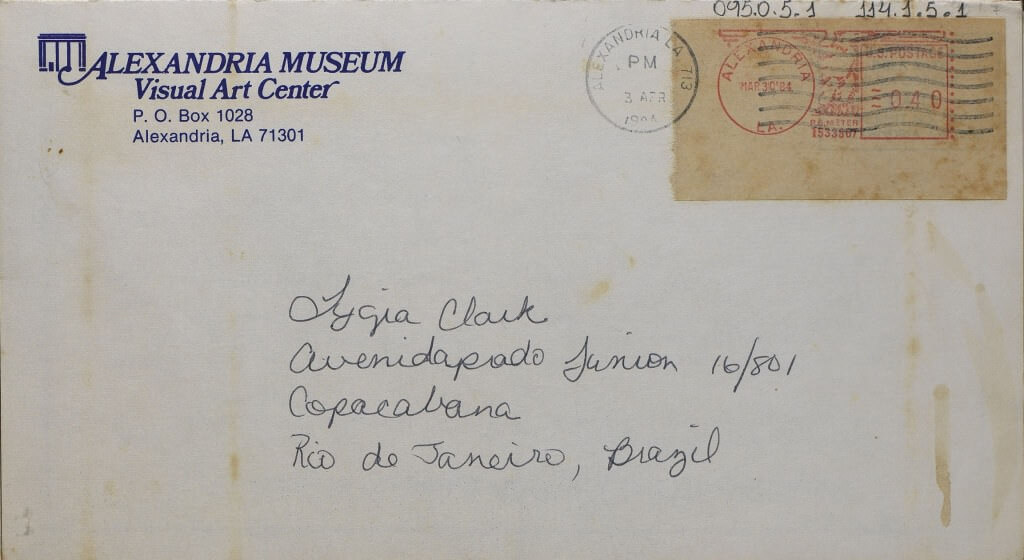 095.0.5.1 114.1.5.1
ALEXANDRIA MUSEUM
Visual Art Center
P. O. Box 1028
Alexandria, LA 71301
ALEXANDRIA LA 713
PM
3 APR
ALEXANDRIA
MAR 30'84
LA.
U.S. POSTAGE
040
P.B. METER
1533807
Lygia Clark
Avenidaprado Junion 16/801
Copacabana
Rio de Janeiro, Brazil